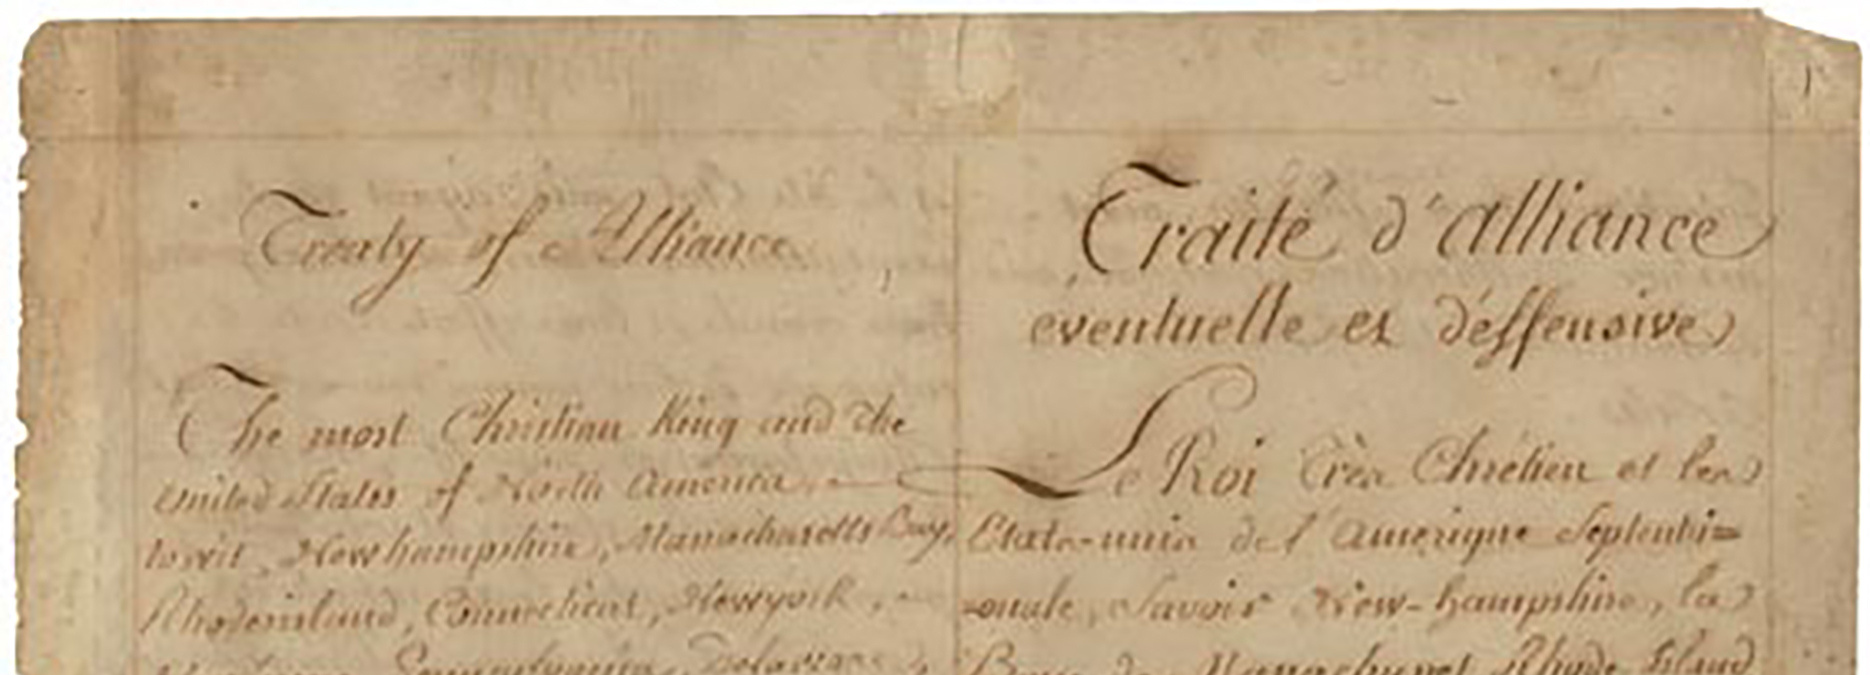 Treaty of Alliance
The most Christian King and the
united States of North America,
to wit, Newhampshire, Massachusetts Bay,
Rhodeisland, Connecticut, Newyork,
Pennsylvania, Delaware
Traité d'alliance
eventuelle et déffensive
Le Roi très Chrétien et les
Etats-unis de l'Amerique Septentri=
=onale, Savoir New-hampshire, la
Baye de Massachuset, Rhode Island